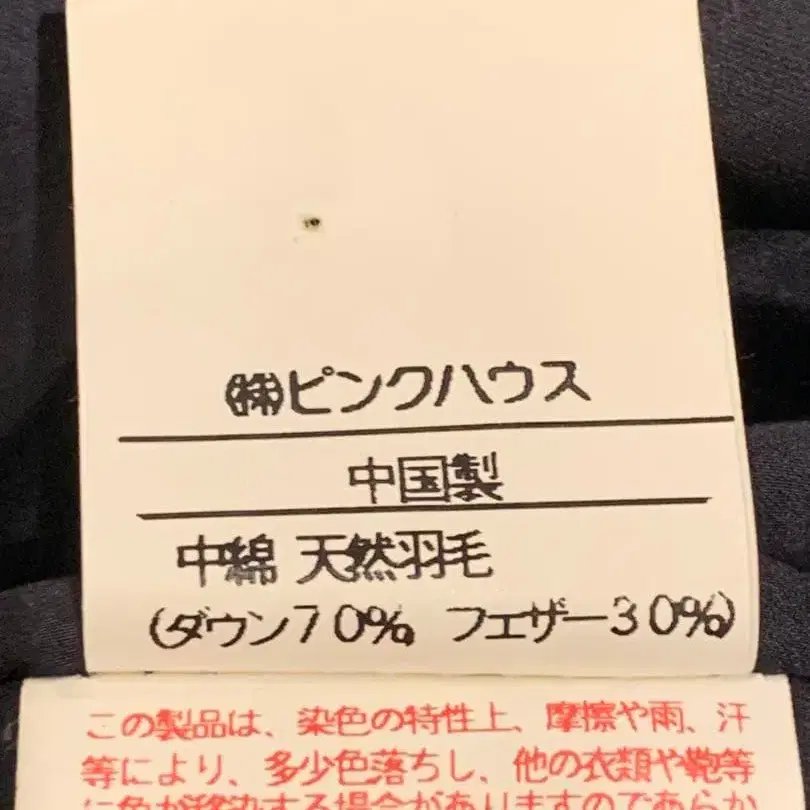 ㈱ピンクハウス
中国製
中綿 天然羽毛
(ダウン70% フェザー30%)
この製品は、染色の特性上、摩擦や雨、汗
等により、多少色落ちし、他の衣類や鞄等
に色が移染する場合がありますのであらか